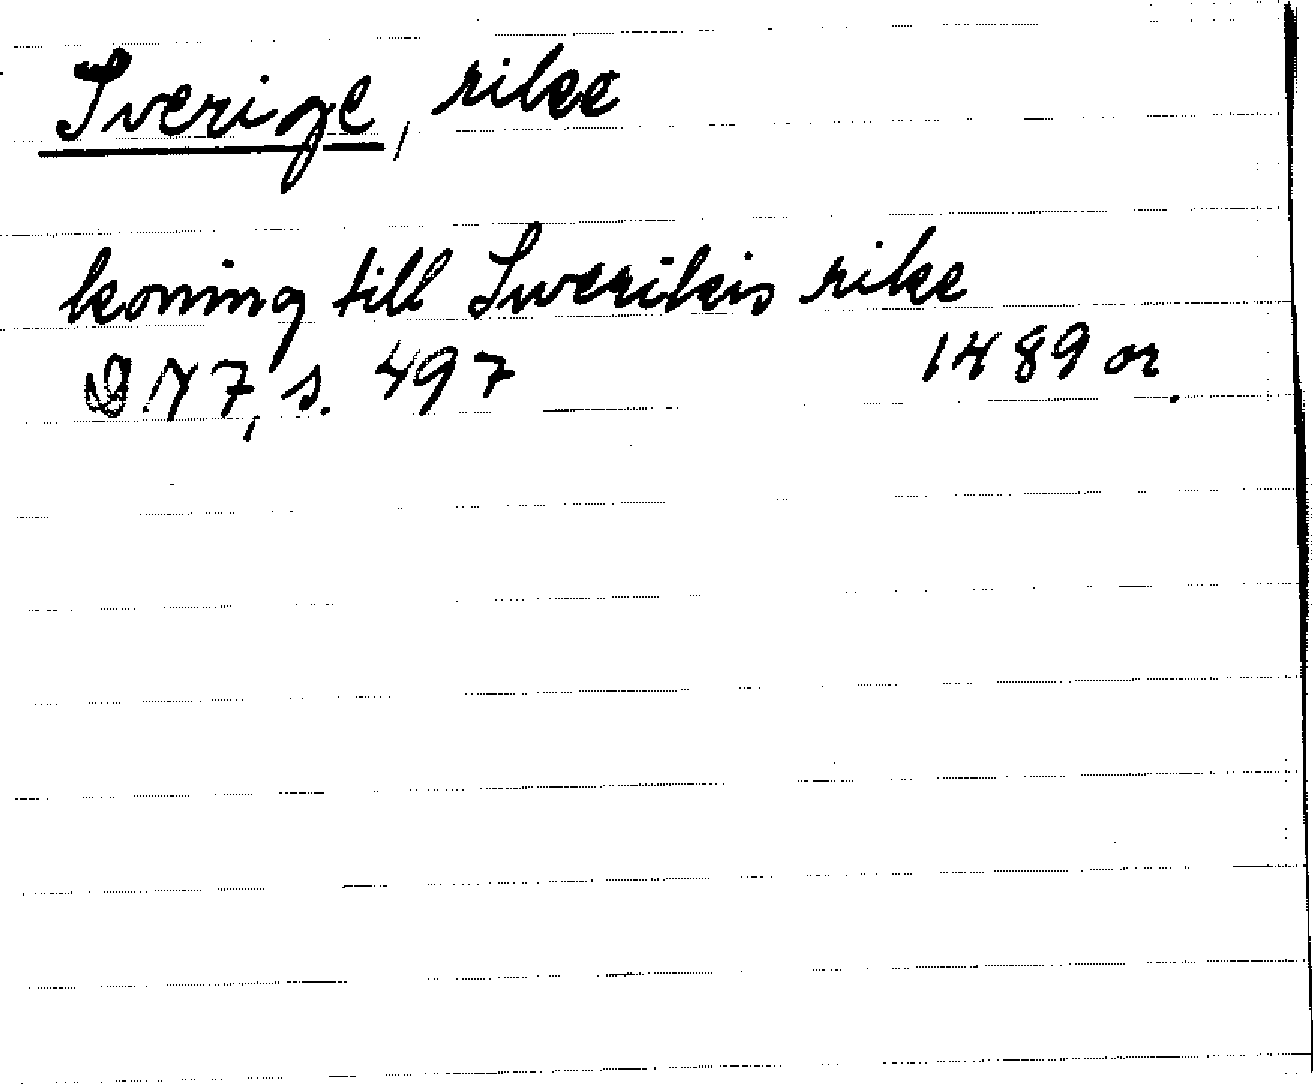 Sverige, rike
koning till Swerikis rike
D N7, s. 497 1489 or.